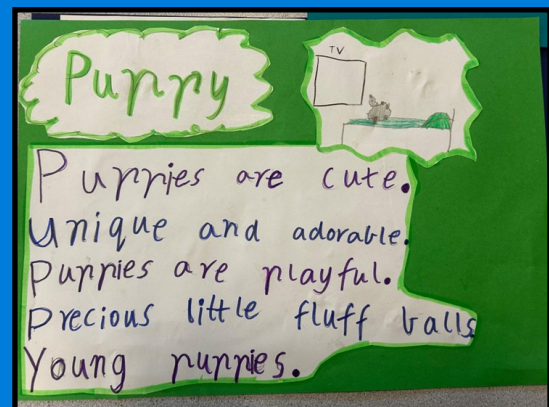 Puppy
TV
Puppies are cute.
Unique and adorable.
Puppies are playful.
Precious little fluff balls
Young puppies.